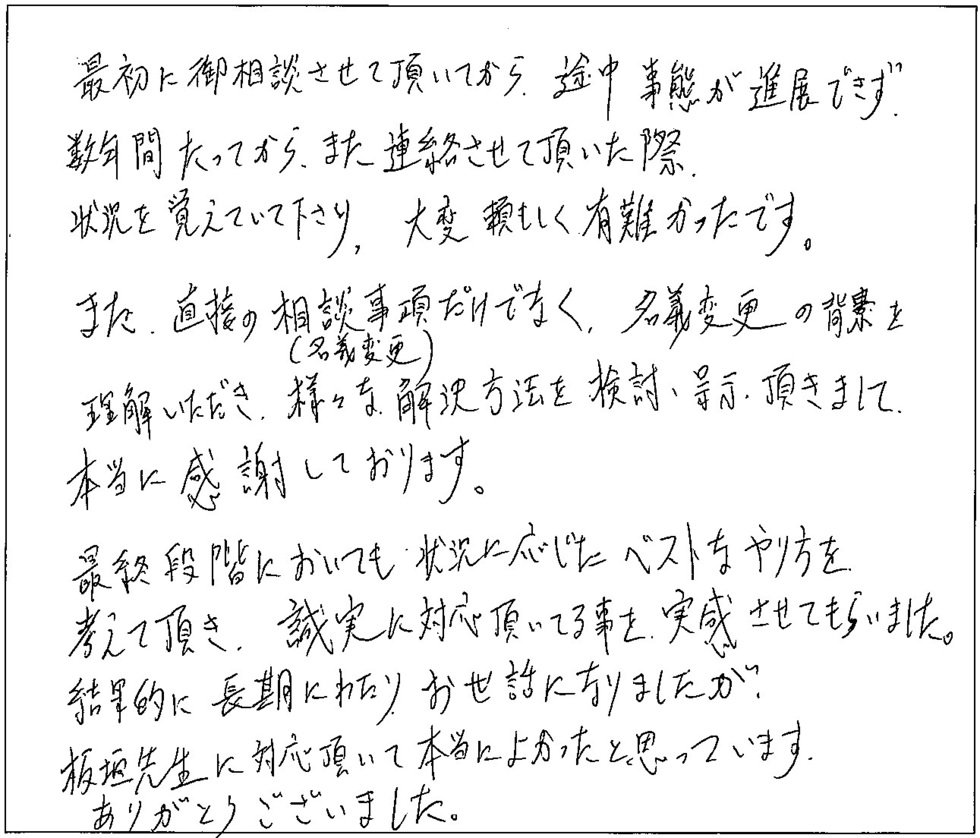 最初に御相談させて頂いてから、途中事態が進展できず、
数年間たってから、また連絡させて頂いた際、
状況を覚えていて下さり、大変頼もしく有難かったです。
また、直接の相談事項だけでなく、名義変更の背景を
(名義変更)
理解いただき、様々な解決方法を検討、呈示、頂きまして、
本当に感謝しております。
最終段階においても、状況に応じたベストなやり方を
考えて頂き、誠実に対応頂いてる事を、実感させてもらいました。
結果的に長期にわたりお世話になりましたが、
板垣先生に対応頂いて本当によかったと思っています。
ありがとうございました。